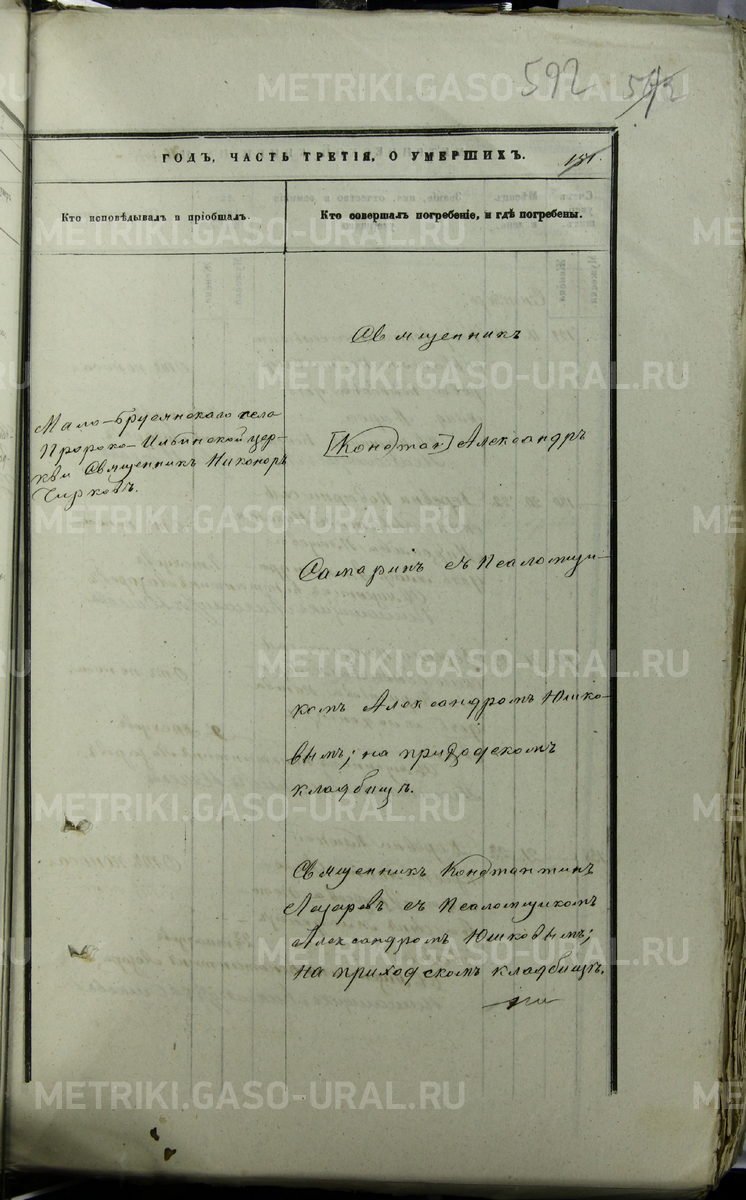 592 572
ГОДЪ, ЧАСТЬ ТРЕТІЯ, О УМЕРШИХЪ.
151.
Кто исповѣдывалъ и пріобщалъ.
Кто совершалъ погребеніе, и гдѣ погребены.
Мало-Брусянскаго села
Пророко-Ильинской цер-
кви Священникъ Никаноръ
Чирковъ.
Священникъ
[Констан] Александръ
Самаринъ съ Псаломщи-
комъ Александромъ Юшко-
вымъ; на приходскомъ
кладбищѣ.
Священникъ Константинъ
Лазаревъ съ Псаломщикомъ
Александромъ Юшковымъ;
на приходскомъ кладбищѣ.
METRIKI.GASO-URAL.RU